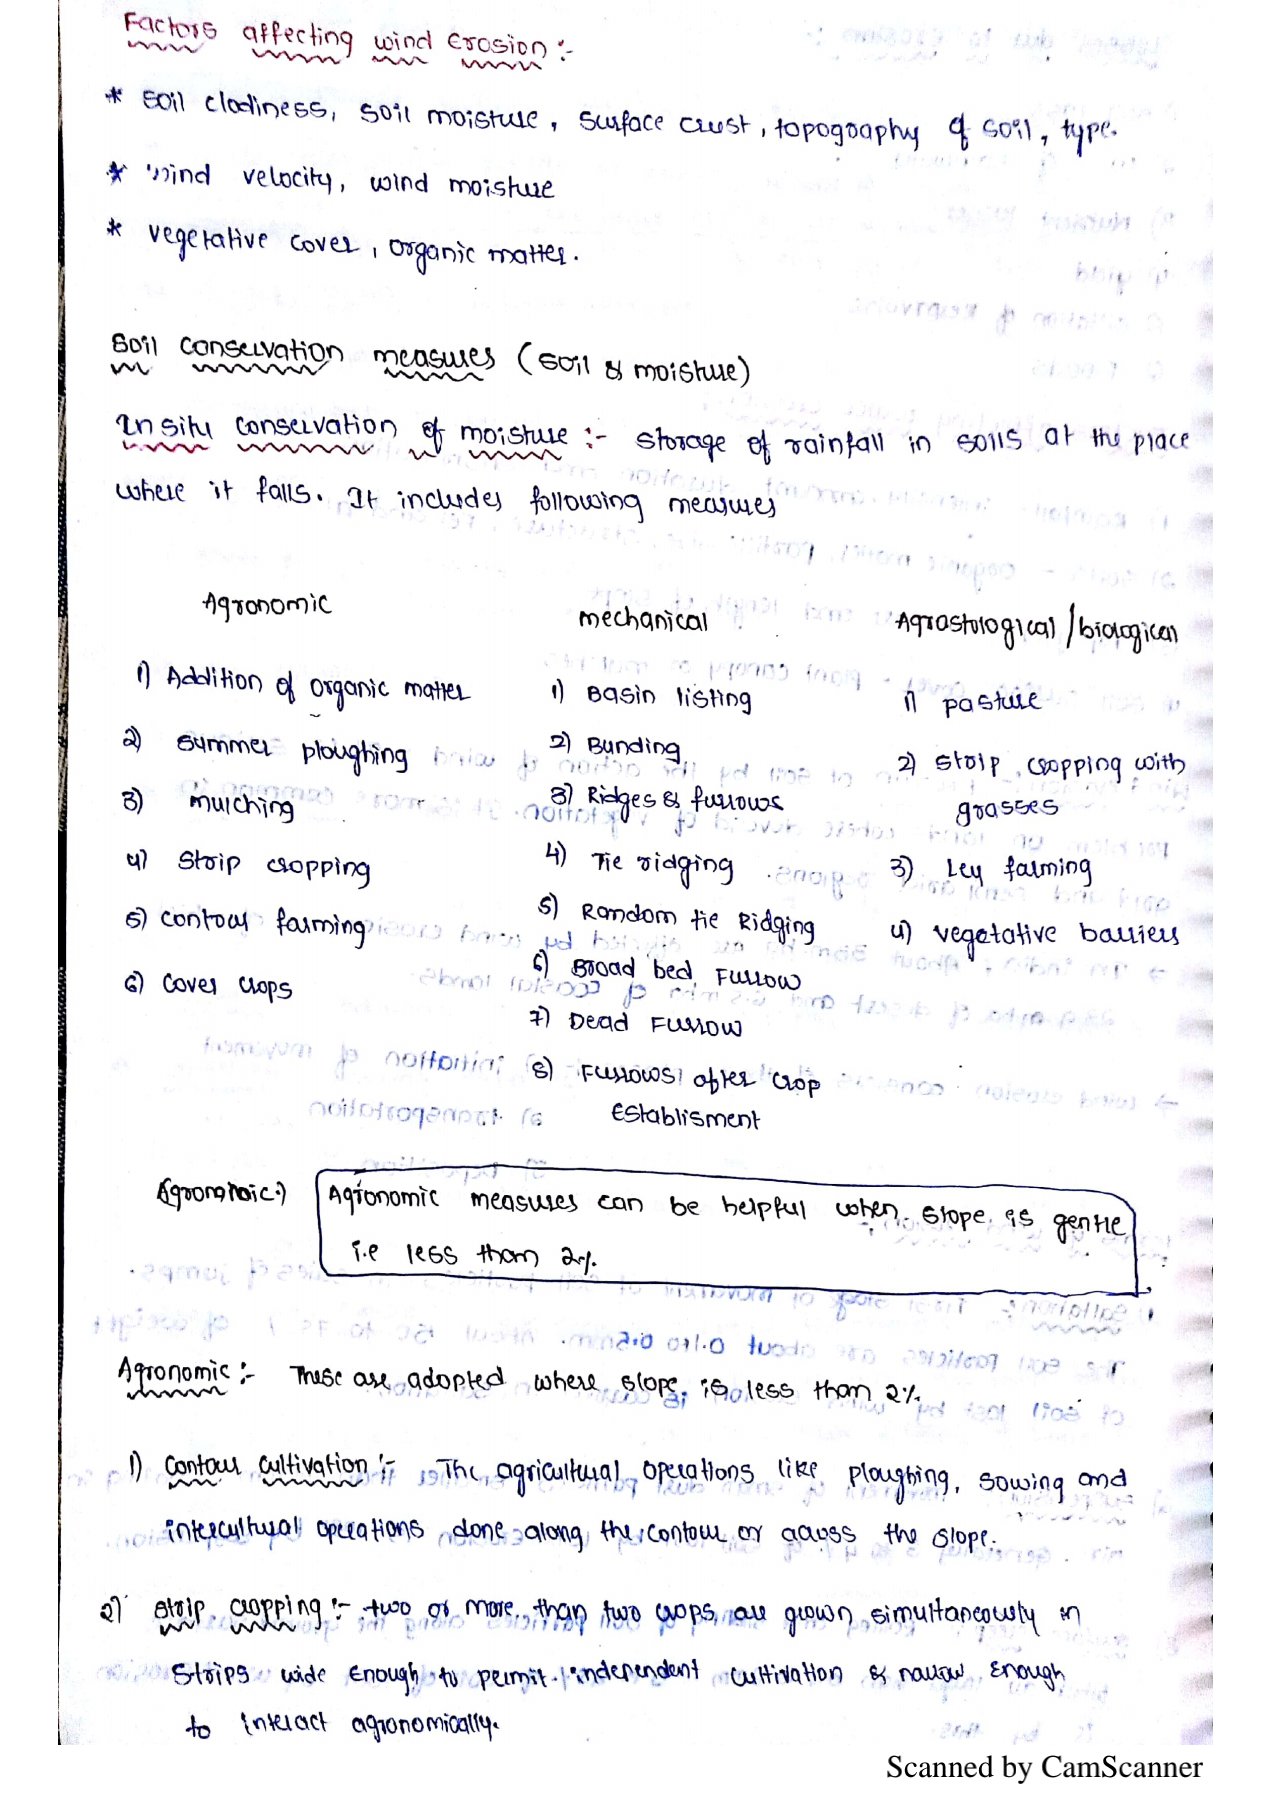 Factors affecting wind Erosion :-
* soil clodiness, soil moisture, surface crust, topography of soil, type.
* wind velocity, wind moisture
* vegetative cover, organic matter.
Soil conservation measures (soil & moisture)
In situ conservation of moisture :- storage of rainfall in soils at the place
where it falls. It includes following measures
Agronomic
1) Addition of organic matter
2) summer ploughing
3) mulching
4) Strip cropping
5) contour farming
6) cover crops
mechanical
1) Basin listing
2) Bunding
3) Ridges & furrows
4) Tie ridging
5) Random tie Ridging
6) Broad bed Furrow
7) Dead Furrow
8) Furrows after crop
Establisment
Agrostological / biological
1) pasture
2) strip cropping with
grasses
3) Ley farming
4) vegetative barriers
Agronomic:) Agronomic measures can be helpful when slope is gentle
i.e less than 2%.
Agronomic :- These are adopted where slope is less than 2%.
1) contour cultivation :- The agricultural operations like ploughing, sowing and
intercultural operations done along the contour or across the slope.
2) strip cropping :- two or more than two crops are grown simultaneously in
strips wide Enough to permit independent cultivation & narrow Enough
to interact agronomically.
Scanned by CamScanner